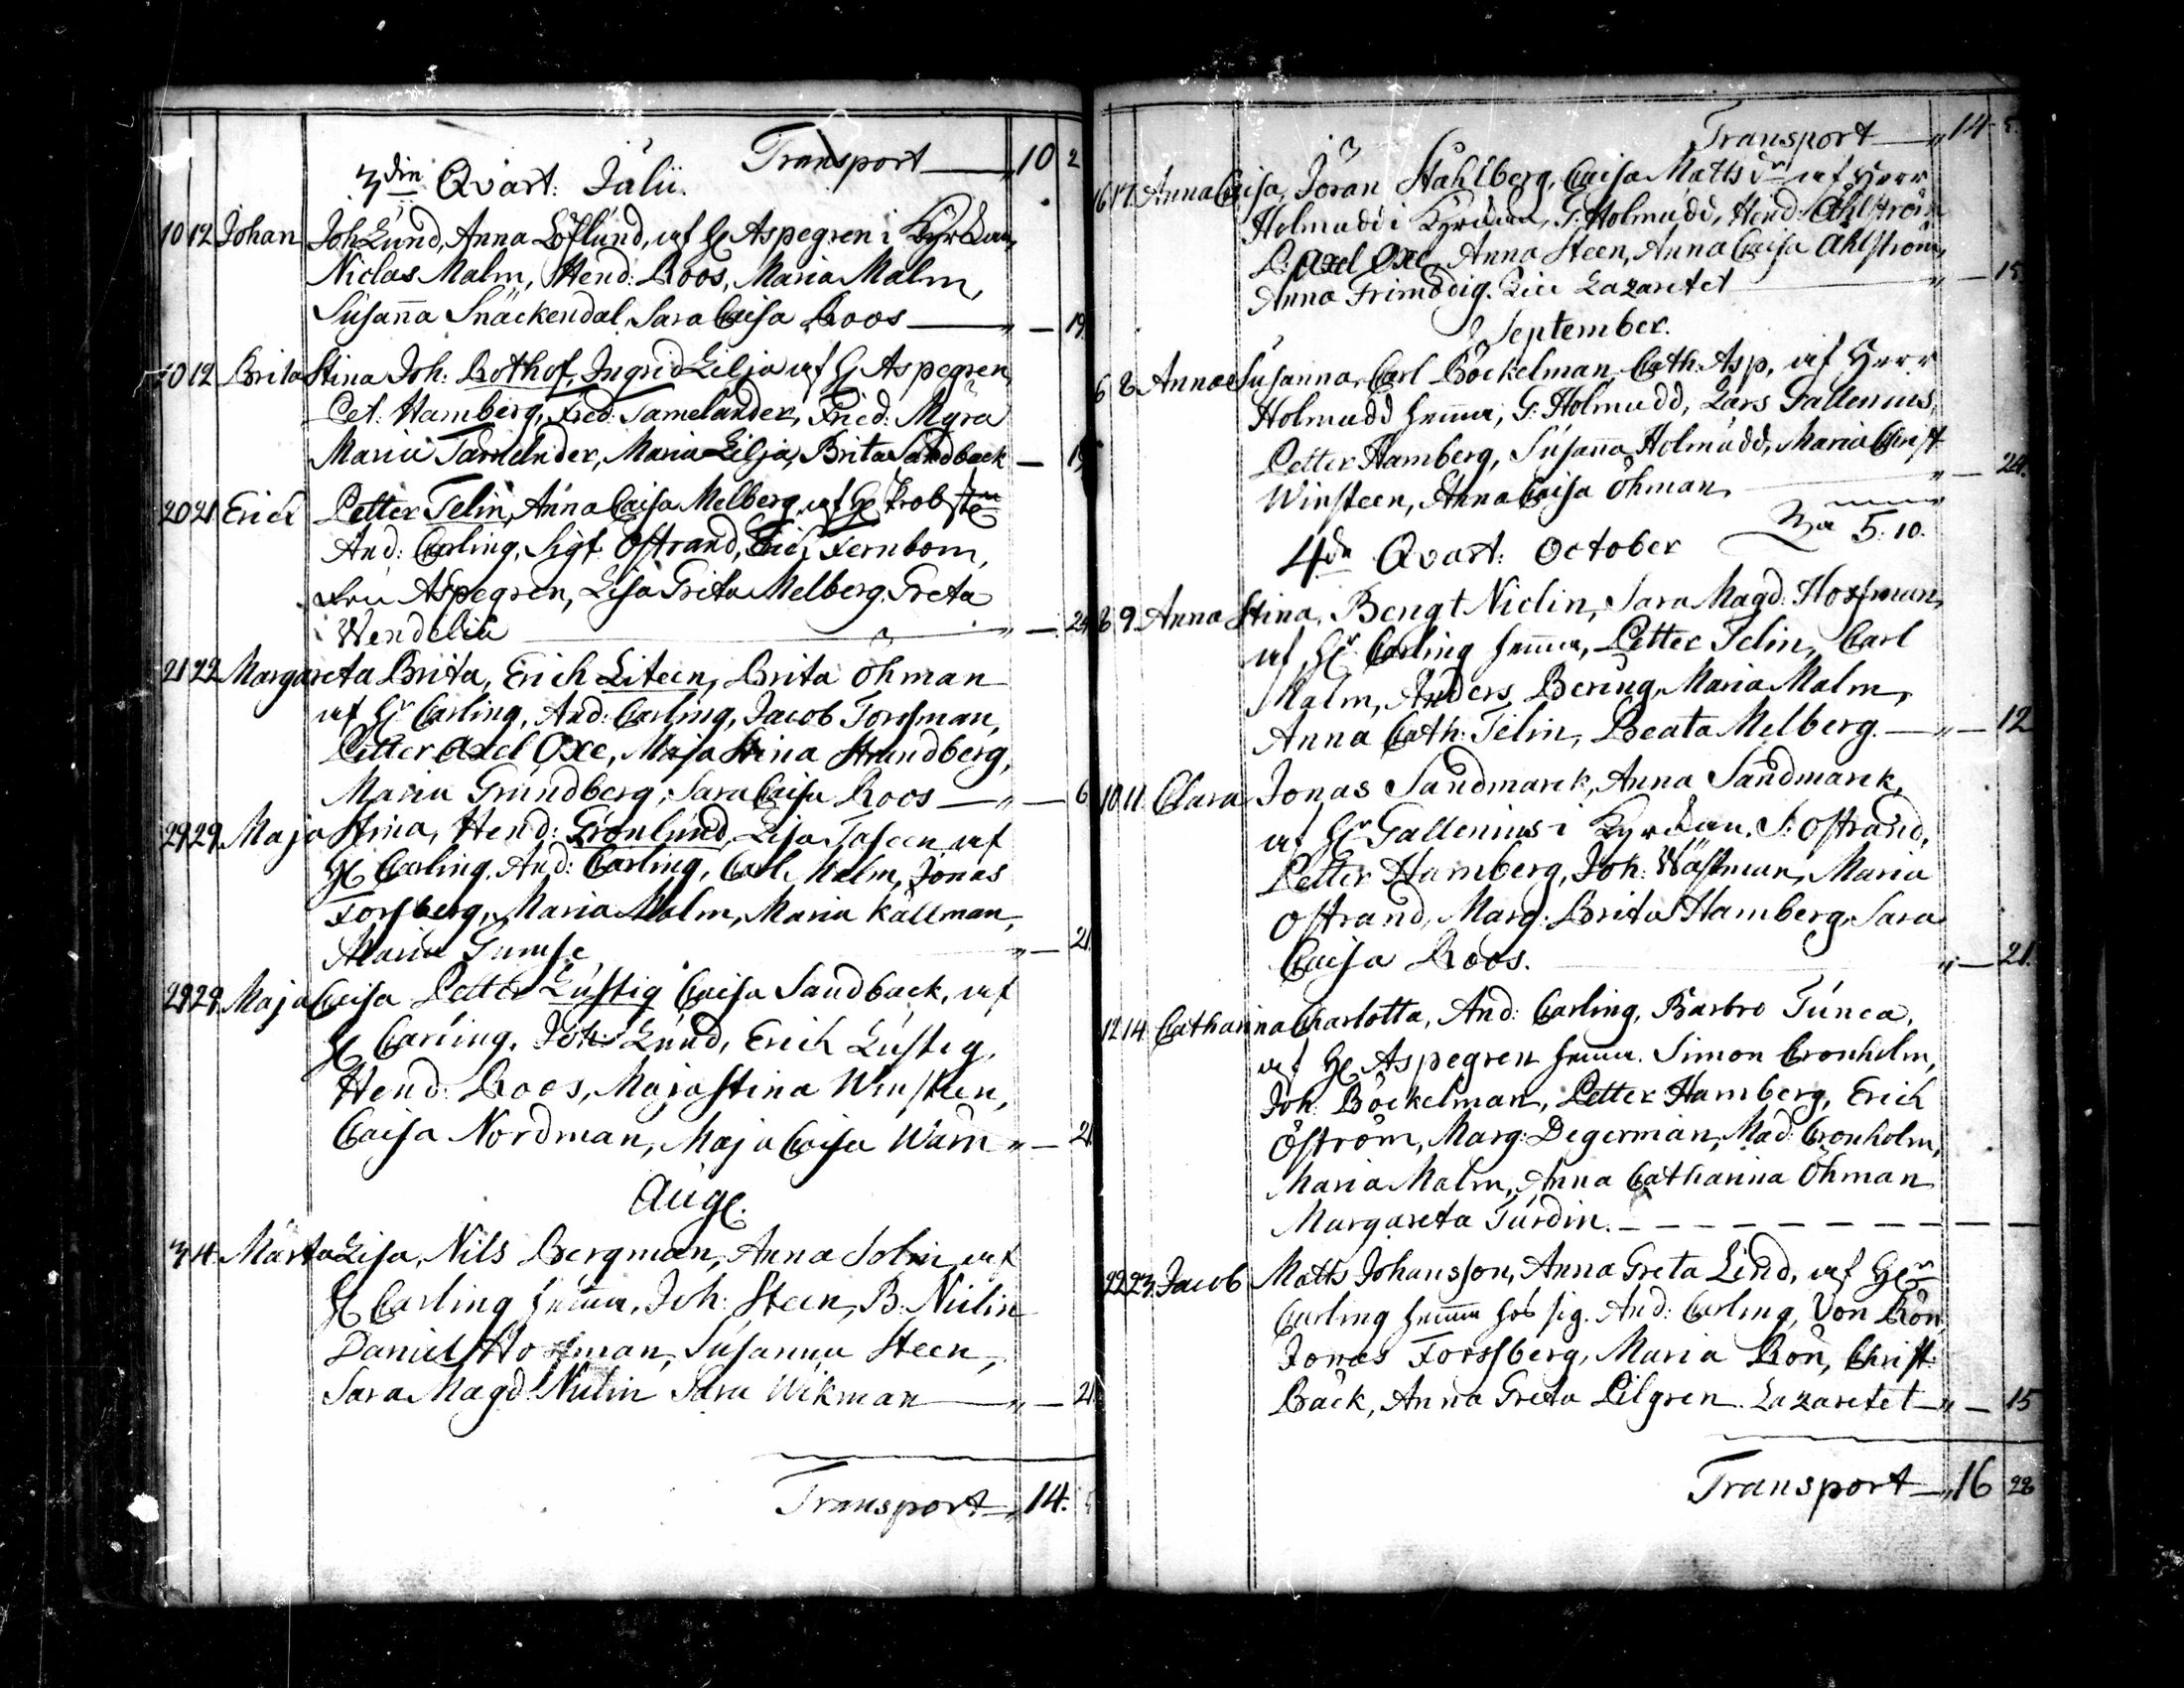 Transport — " 10 2
3din Qvart: Julii.
10 12 Johan Joh Lund, Anna Löflund, af H Aspegren i Kyrckan,
Niclas Malm, Hend: Roos, Maria Malm,
Susanna Snäckendal, Sara Caisa Roos — " — 19.
10 12 Brita Stina Joh: Bothof, Ingrid Lilja af H Aspegren,
Pet: Hamberg, Fred: Tamelander, Fried: Myra
Maria Tamelnder, Maria Lilja, Brita Sandback —
20 21 Erich Petter Telin, Anna Caisa Melberg, af H Probsten
And: Carling, Sigf: Östrand, Erich Fernbom,
Fru Aspegren, Lisa Greta Melberg, Greta
Wendelia — " — 24
21 22 Margareta Brita, Erich Liteen, Brita Öhman
af Hr Carling, And: Carling, Jacob Forsman,
Petter Axel Oxe, Maja Stina Strandberg,
Maria Grundberg, Sara Caisa Roos — " — 6
29 29 Maja Stina, Hend: Grönlund, Lisa Taseen af
H Carling, And: Carling, Carl Malm, Jonas
Forsberg, Maria Malm, Maria Källman,
Maria Gumse " — 21.
29 29 Maja Caisa Petter Lustig Caisa Sandback, af
H Carling, Joh: Lund, Erich Lustig,
Hend: Roos, Maja Stina Winsteen,
Caisa Nordman, Maja Caisa Warn " — 21
Aug.
3 4 Märta Lisa, Nils Bergman, Anna Solin, af
H Carling hemma, Joh: Steen, B: Niclin
Daniel Hofman, Susanna Steen,
Sara Magd: Niclin Sara Wikman — " — 21.
Transport — " 14.
Transport — " 14 - 5.
16 17 Anna Caisa, Jöran Ståhlberg, Caisa Matts dr af Herr
Holmudd i Kyrckan, G: Holmudd, Hend: Åhlström
P: Axel Oxe, Anna Steen, Anna Caisa Åhlström,
Anna Frimodig. Lazaretet — " — 15.
September.
6 8 Anna Susanna, Carl Böckelman, Cath: Asp, af Herr
Holmudd hemma, G: Holmudd, Lars Gallenius,
Petter Hamberg, Susanna Holmudd, Maria Christ
Winsteen, Anna Caisa Öhman. — " — 24.
5: 10.
4de Qvart: October
8 9 Anna Stina, Bengt Niclin, Sara Magd: Hofman,
af Hr Carling hemma, Petter Telin, Carl
Malm, Anders Bering, Maria Malm,
Anna Cath: Telin, Beata Melberg. — " — 12
10 11 Clara Jonas Sandmarck, Anna Sandmarck,
af Hr Gallenius i Kyrckan. S: Östrand,
Petter Hamberg, Joh: Wästman, Maria
Östrand, Marg: Brita Hamberg, Sara
Caisa Roos. " — 21.
12 14 Catharina Charlotta, And: Carling, Barbro Tunca,
af H Aspegren hemma. Simon Cronholm,
Joh: Böckelman, Petter Hamberg, Erich
Öström, Marg: Degerman, Mad: Cronholm,
Maria Malm, Anna Catharina Öhman
Margareta Turdin. — — — — — —
22 23 Jacob Matts Johansson, Anna Greta Lind, af Her
Carling hemma hos sig. And: Carling, Von Rön,
Jonas Forssberg, Maria Rön, Christ:
Bäck, Anna Greta Pilgren. Lazaretet — " — 15
Transport — " 16 28